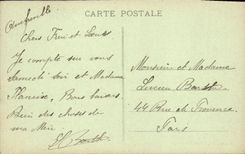 CARTE POSTALE
Chers Fre et Louis
Je compte sur vous
Samedi Soir et Madame
Bons baisers
Bien des choses de
ma Mère
Monsieur et Madame
Lucien
44 Rue de Provence
Paris